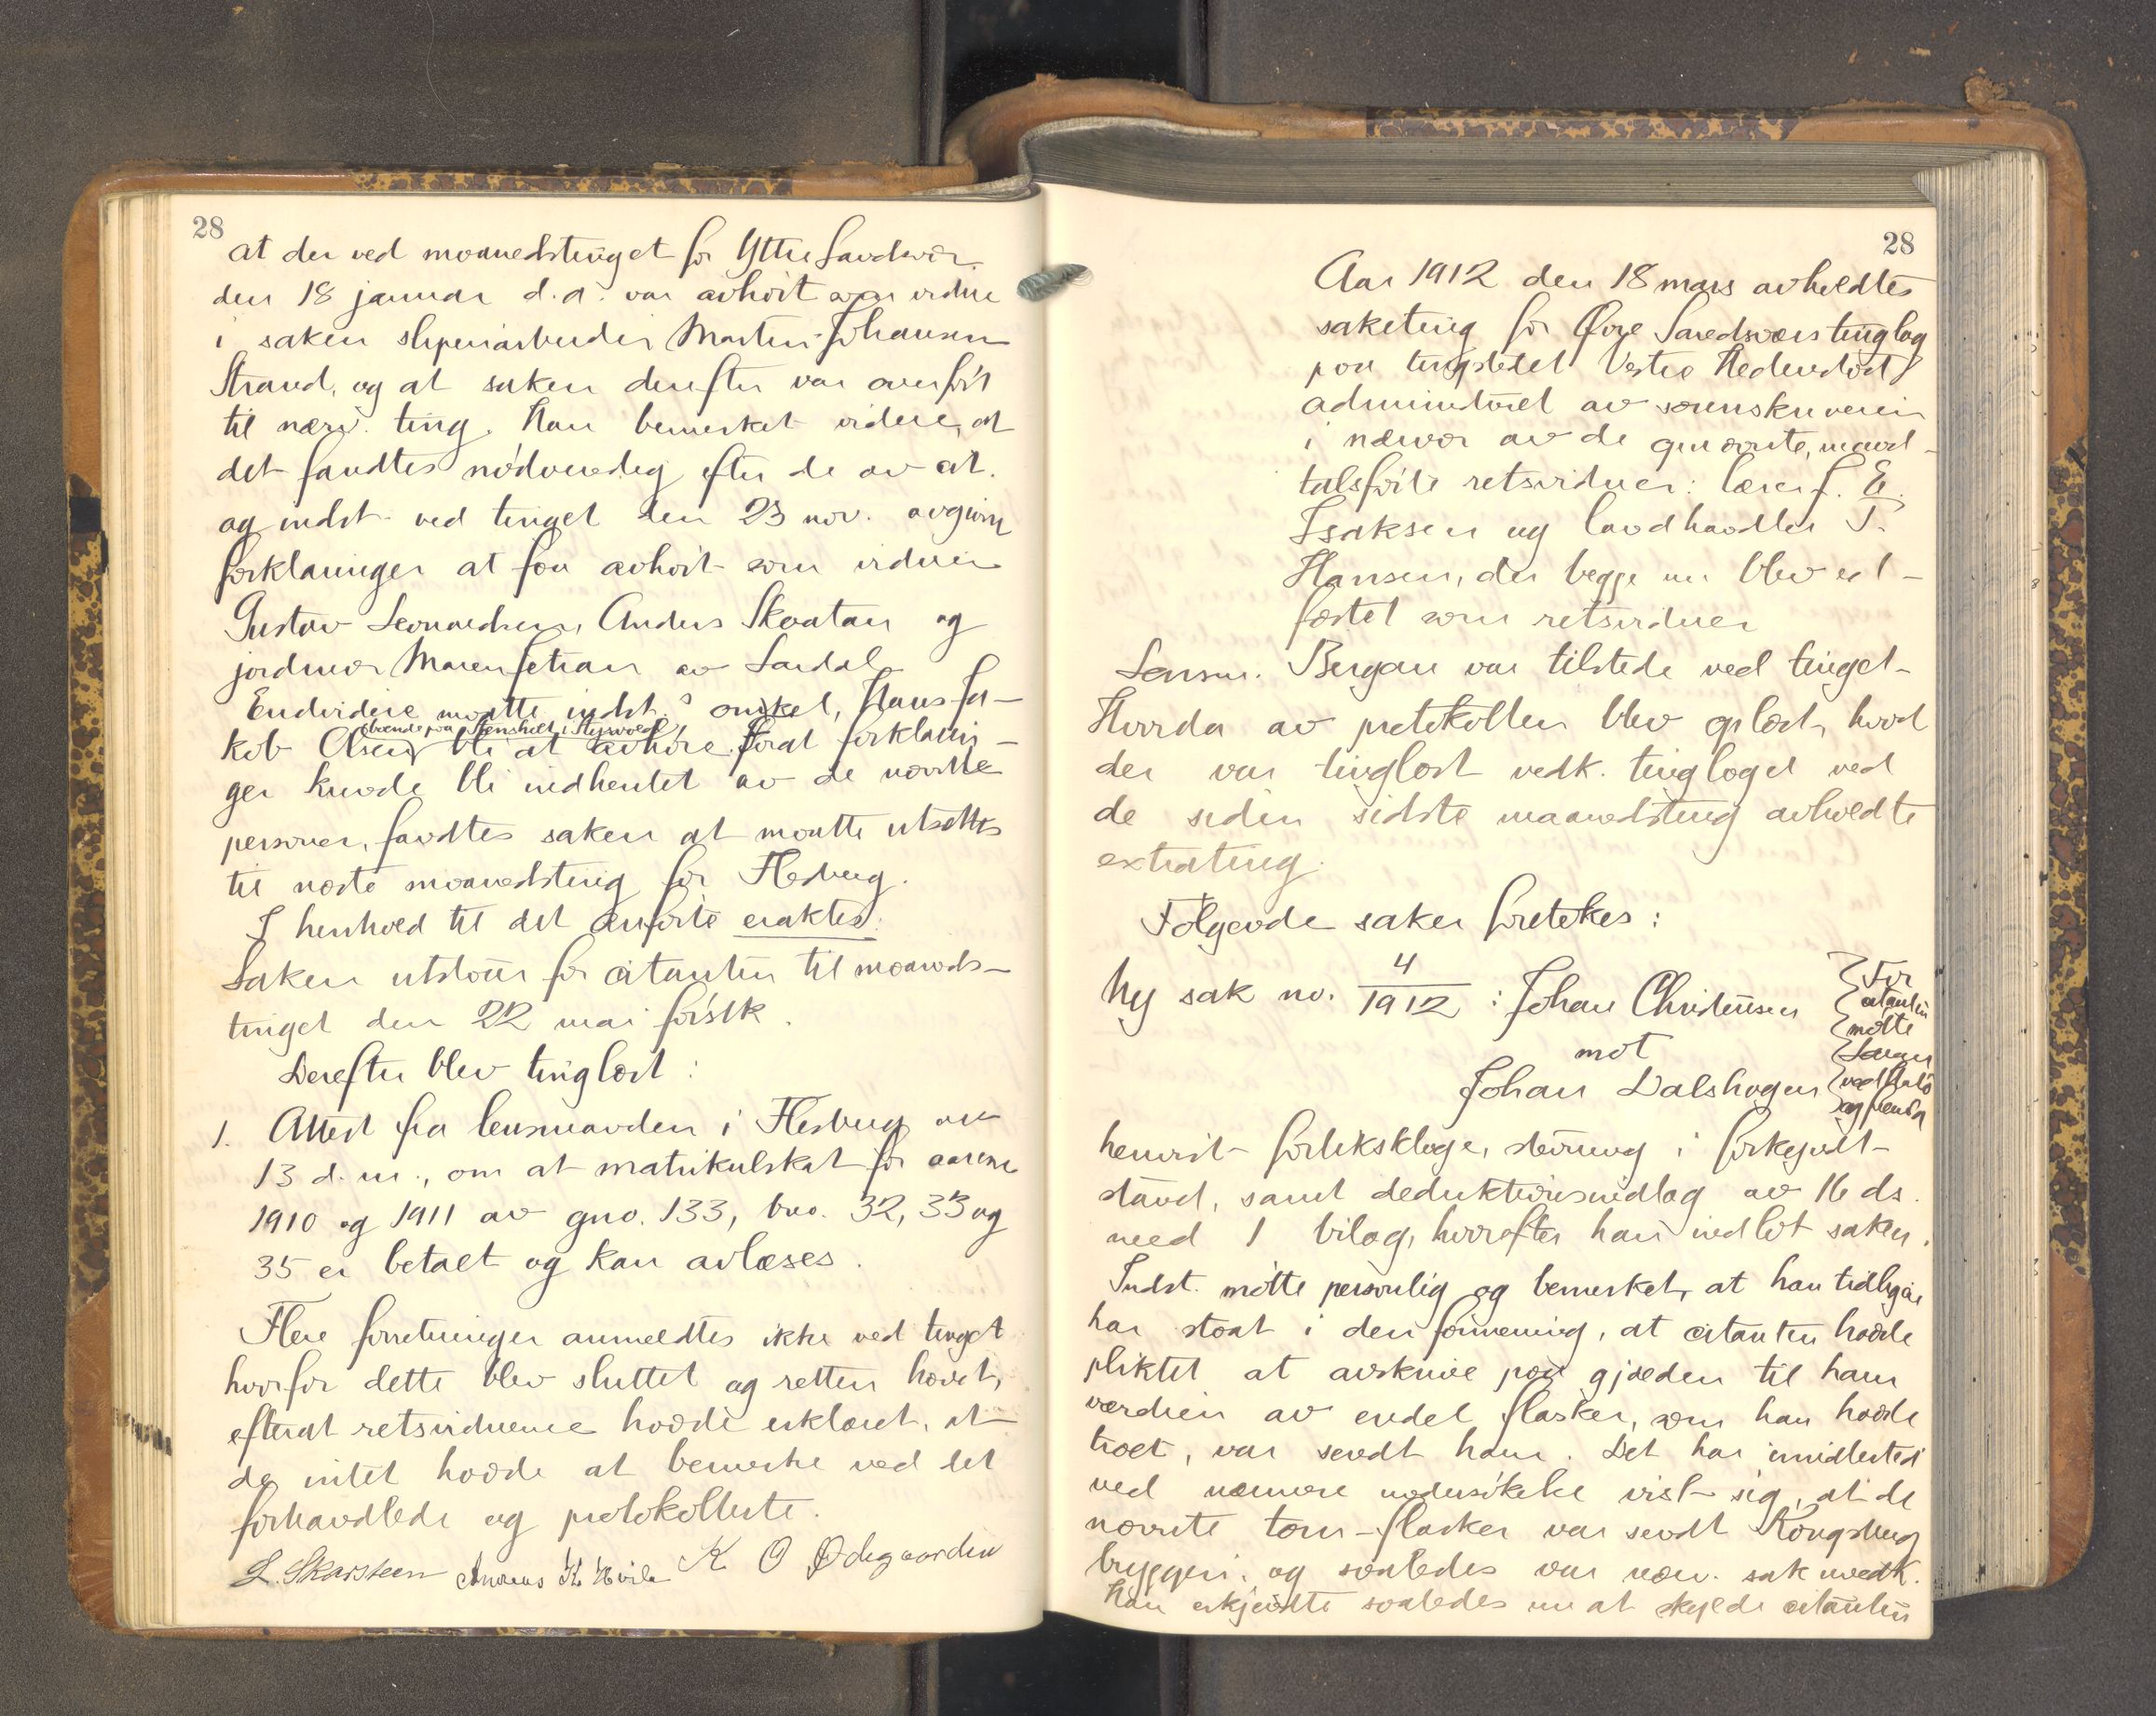 28
at der ved maanedstinget for Ytre Sandsvær
den 18 januar d.a. var avhørt som vidne
i saken sliperiarbeider Martin Johansen
Strand, og at saken derefter var overført
til nærv. ting. Han bemerket videre, at
det fandtes nødvendig efter de av cit.
og indst. ved tinget den 23 nov. avgivne
forklaringer at faa avhørt som vidner
Gustav Leonardsen, Anders Skaatan og
jordmor Maren Setran av Sandsv.
Endvidere maatte indst.s onkel, Hans Ja-
boende paa Stensholt i
kob Olsen bli at avhøre. Forat forklarin-
ger kunde bli indhentet av de nævnte
personer, fandtes saken at maatte utsettes
til næste maanedsting for Flesberg.
I henhold til det anførte eraktes:
Saken utstaar for citanten til maaneds-
tinget den 22 mai førstk.
Derefter blev tinglæst:
1. Attest fra lensmanden i Flesberg av
13 d.m., om at matrikulskat for aarene
1910 og 1911 av gno. 133, bno. 32, 33 og
35 er betalt og kan avlæses.
Flere forretninger anmeldtes ikke ved tinget
hvorfor dette blev sluttet og retten hævet,
efterat retsvidnerne hadde erklæret, at
de intet hadde at bemerke ved det
forhandlede og protokollerte.
L. Skarsteen Andreas K Hvila K O Ødegaarden
28
Aar 1912 den 18 mars avholdtes
saketing for Øvre Sandsværs tinglag
paa tingstedet Vestre Hedenstad,
administreret av sorenskriveren
i nærvær av de opnævnte, mand-
talsførte retsvidner: lærer f. E.
Isaksen og landhandler T.
Hansen, der begge nu blev ed-
fæstet som retsvidner
Lensm. Bergan var tilstede ved tinget.
Hvorda av protokollen blev oplæst, hvad
der var tinglæst vedk. tinglaget ved
de siden sidste maanedsting avholdte
extrating.
Følgende saker foretokes:
Ny sak no. 4/1912: Johan Christensen
mot
Johan Dalshagen
For
citanten
møtte
og fremla
henvist forliksklage, stevning i forkynt
stand, samt deduktionsindlag av 16 ds.
med 1 bilag, hvorefter han indlot saken.
Indst. møtte personlig og bemerket, at han tidligere
har staat i den formening, at citanten hadde
pliktet at avskrive paa gjælden til ham
værdien av endel flasker, som han hadde
troet, var sendt ham. Det har imidlertid
ved nærmere undersøkelse vist sig, at de
nævnte tom-flasker var sendt Kongsberg
bryggeri, og saaledes var nærv. sak uvedk.
Han erkjendte saaledes nu at skylde citanten